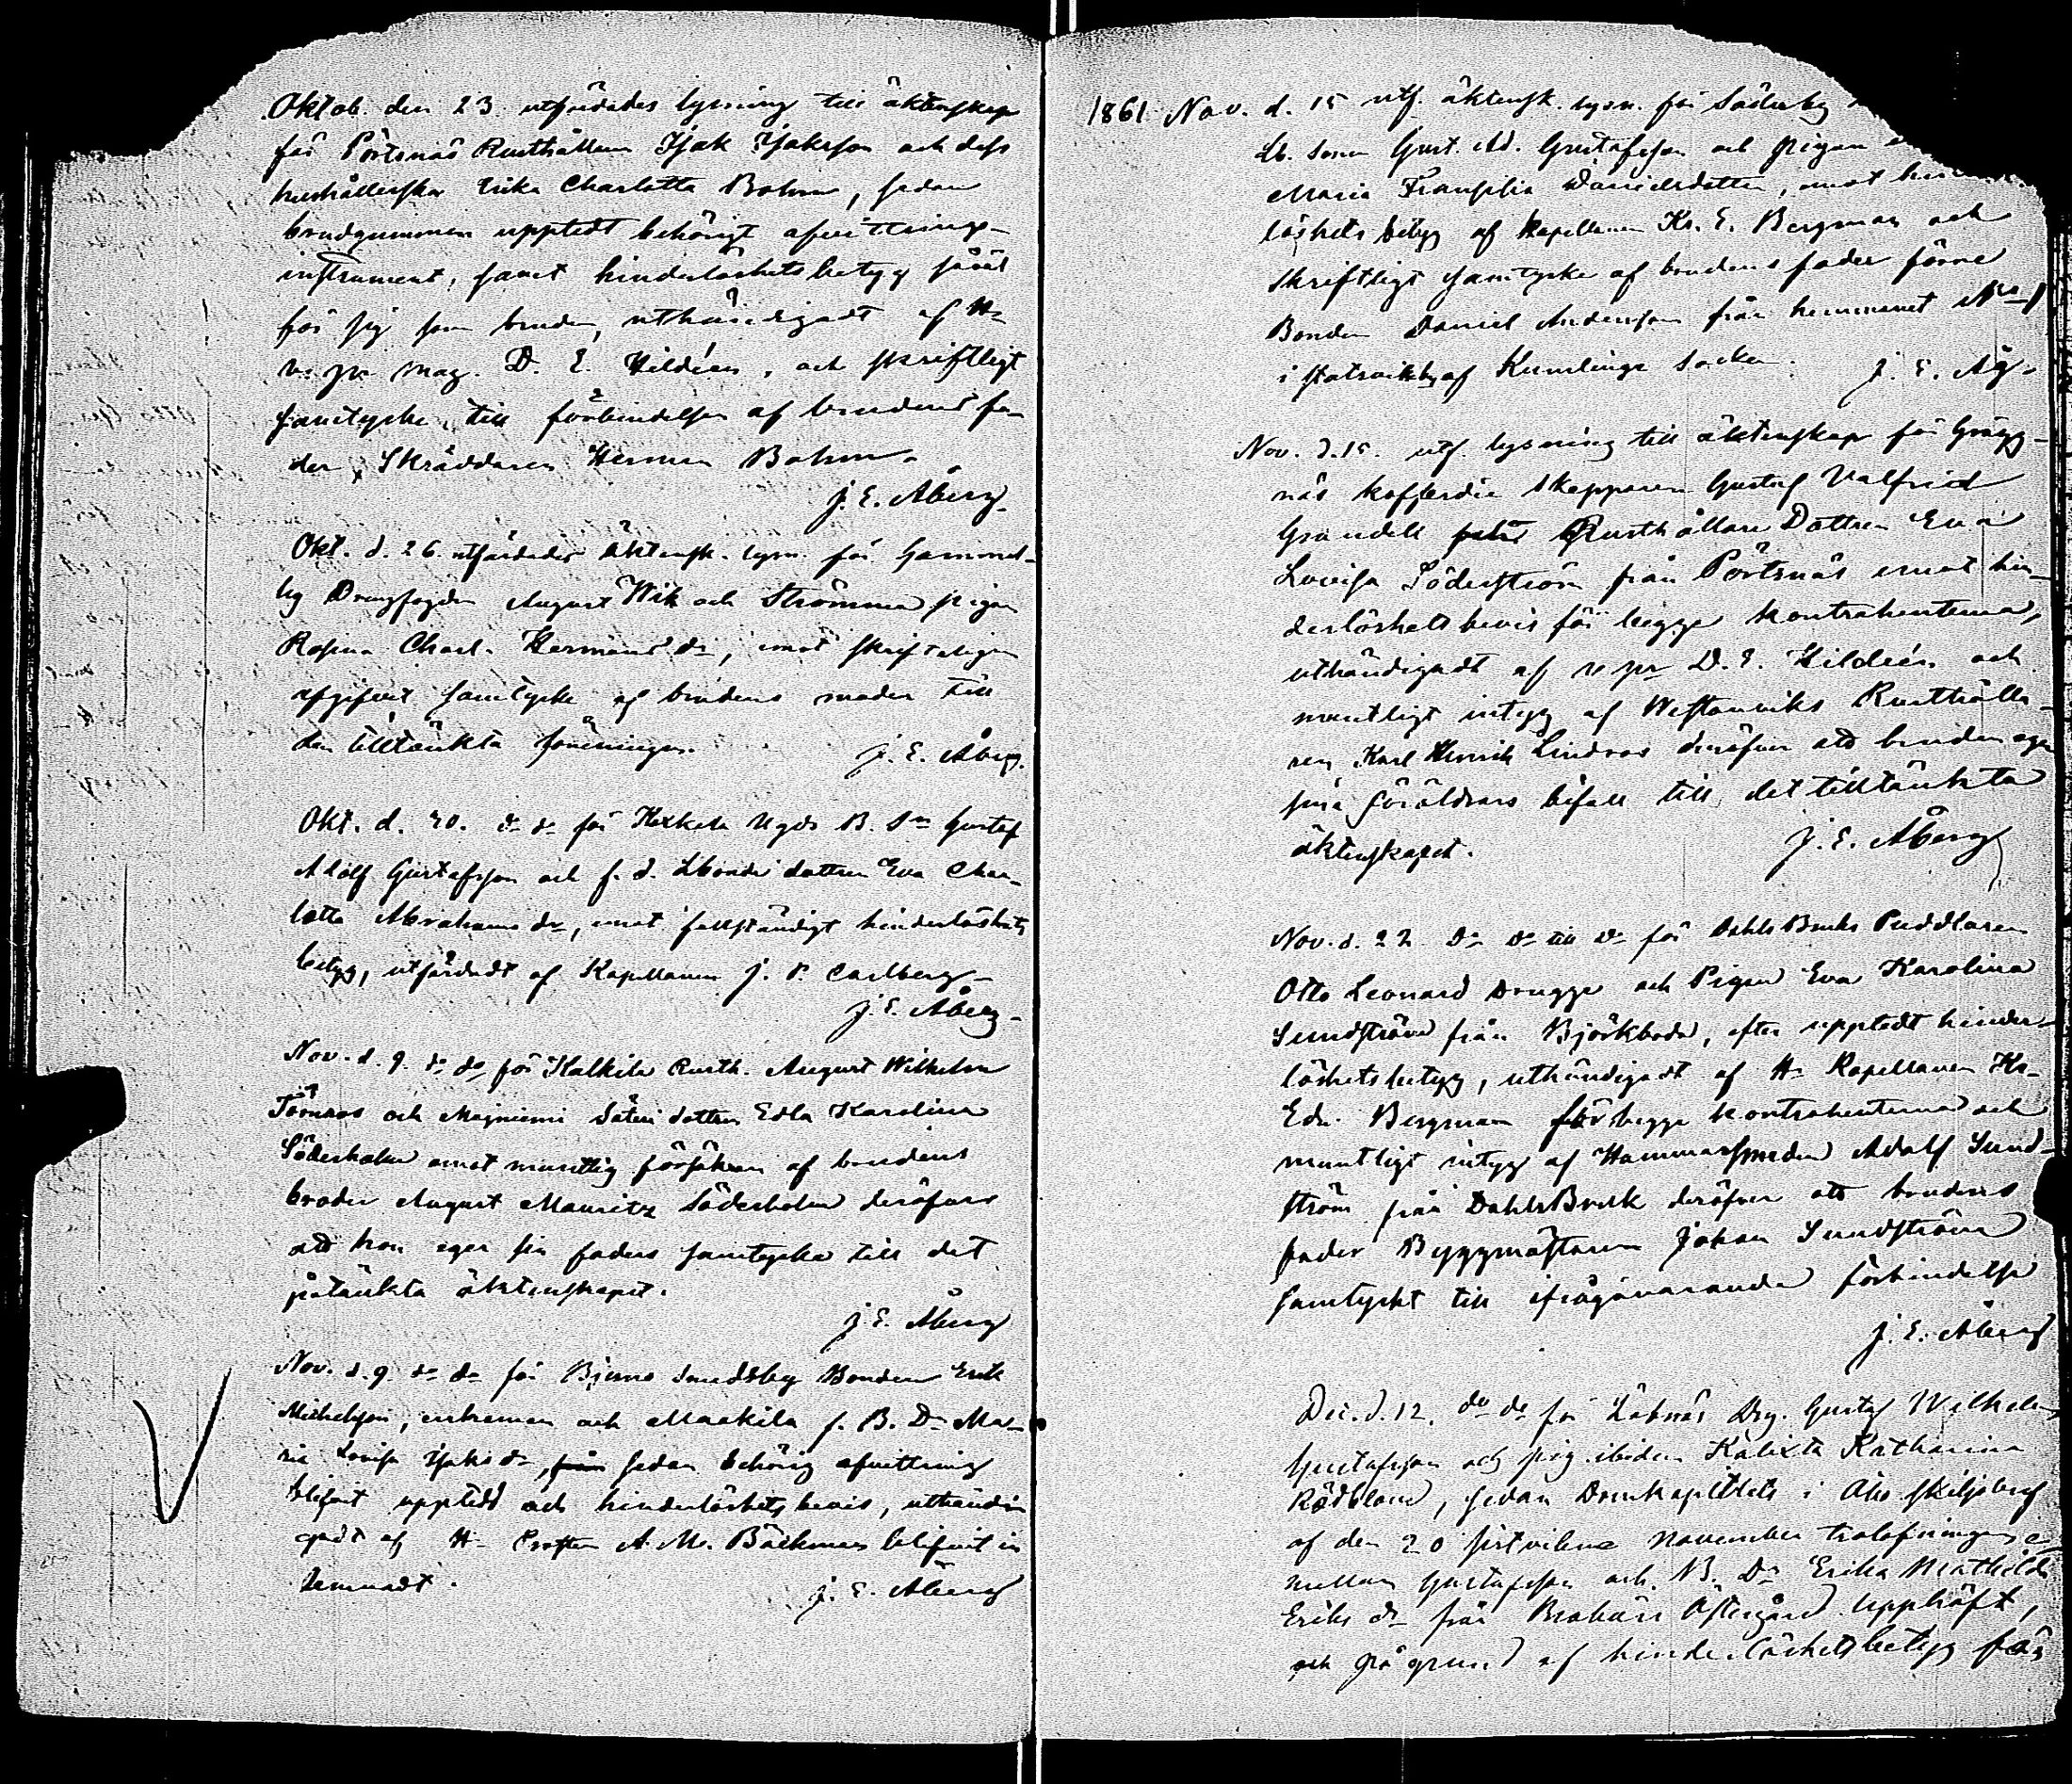 Oktob. den 23. utfärdades lysning till äktenskap
för Pörtsnäs Rusthållaren Isak Isaksson och dess
hushållerska Erika Charlotta Bohm, sedan
brudgummen upptedt behörigt afvittrings-
instrument, samt hinderlöshetsbetyg såväl
för sig som bruden, uthändigadt af Hr
v. pr mag. D. E. Hildéen, och skriftligt
samtycke till förbindelsen af brudens fa-
der, Skräddaren Herman Bohm.
J. E. Åberg.
Okt. d. 26. utfärdades äktensk. lysn. för Gammel-
by Drengfogden August Wik och Strömma pigan
Rosina Charl. Hermans dr, emot skriftligen
afgifvet samtycke af brudens moder till
den tilltänkta föreningen.
J. E. Åberg.
Okt. d. 30. do do för Kexkela Nygds B. Sn Gustaf
Adolf Gustafsson och f. d. Lbonde dottren Eva Char-
lotta Abrahams dr, emot fullständigt hinderlöshets
betyg, utfärdadt af Kapellanen J. P. Carlberg.
J. E. Åberg.
Nov. d. 9. do do för Kalkila Rusth. August Wilhelm
Törnroos och Majniemi Säteri dottren Edla Karolina
Söderholm emot muntlig försäkran af brudens
broder August Mauritz Söderholm deröfver
att hon eger sin faders samtycke till det
påtänkta äktenskapet.
J. E. Åberg
Nov. d. 9. do do för Bjerno Smedsby Bonden Erik
Michelsson, enkeman och Maakila f. B. Dr Ma-
ria Lovisa Isaks dr, från sedan behörig afvittring
blifvit upptedd och hinderlöshets bevis, uthändi-
gadt af Hr Prosten A. M. Bäckman blifvit in
lemnadt.
J. E. Åberg
1861. Nov. d. 15 utf. äktensk. lysn. för Söderby
Lb. Sonen Gust. Ad. Gustafsson och pigan
Maria Fransilia Danielsdotter, emot hin
löshets betyg af Kapellanen Kr. E. Bergman och
skriftligt samtycke af brudens fader förre
Bonden Daniel Andersson från hemmanet No 1
i af Kumlinge Socken.
J. E. Åg.
Nov. d. 15. utf. lysning till äktenskap för Grägg-
näs kofferdie skepparen Gustaf Valfrid
Grandell Rusthållare Dottren Eva
Lovisa Söderström från Pörtsnäs emot hin-
derlöshets bevis för begge kontrahenterna,
uthändigadt af v pr D. E. Hildéen och
muntligt intyg af Westanviks Rusthålla-
ren Karl Henrik Lindroos deröfver att bruden eger
sina föräldrars bifall till det tilltänkta
äktenskapet.
J. E. Åberg
Nov. d. 22. do do till do för Dahls Bruks Puddlaren
Otto Leonard Drugge och Pigan Eva Karolina
Sundström från Björkboda, efter upptedt hinder-
löshetsbetyg, uthändigadt af Hr Kapellanen Kr.
Edv. Bergman för begge kontrahenterna och
muntligt intyg af Hammarsmeden Adolf Sund-
ström från DahlsBruk deröfver att brudens
fader Byggmästaren Johan Sundström
samtyckt till ifrågavarande förbindelse
J. E. Åberg
Dec. d. 12. do do för Labnäs Drg. Gustaf Wilhelm
Gustafsson och pig. ibiden Kalixta Katharina
Rödblom, sedan Domkapitlets i Åbo skiljobref
af den 20 sistvikne November trolofningen e-
mellan Gustafsson och B. Dr Erika Mathilda
Eriks dr från Brokärr Östergård upphäft,
och på grund af hinderlöshetsbetyg för